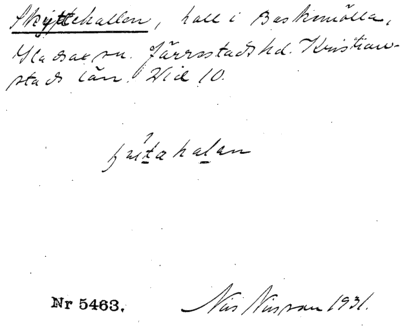 Skyttehallen, hall i Baskemölla,
Gladsax sn. Järrestads hd. Kristian-
stads län. Wid 10.
Nr 5463. Nils 1931.